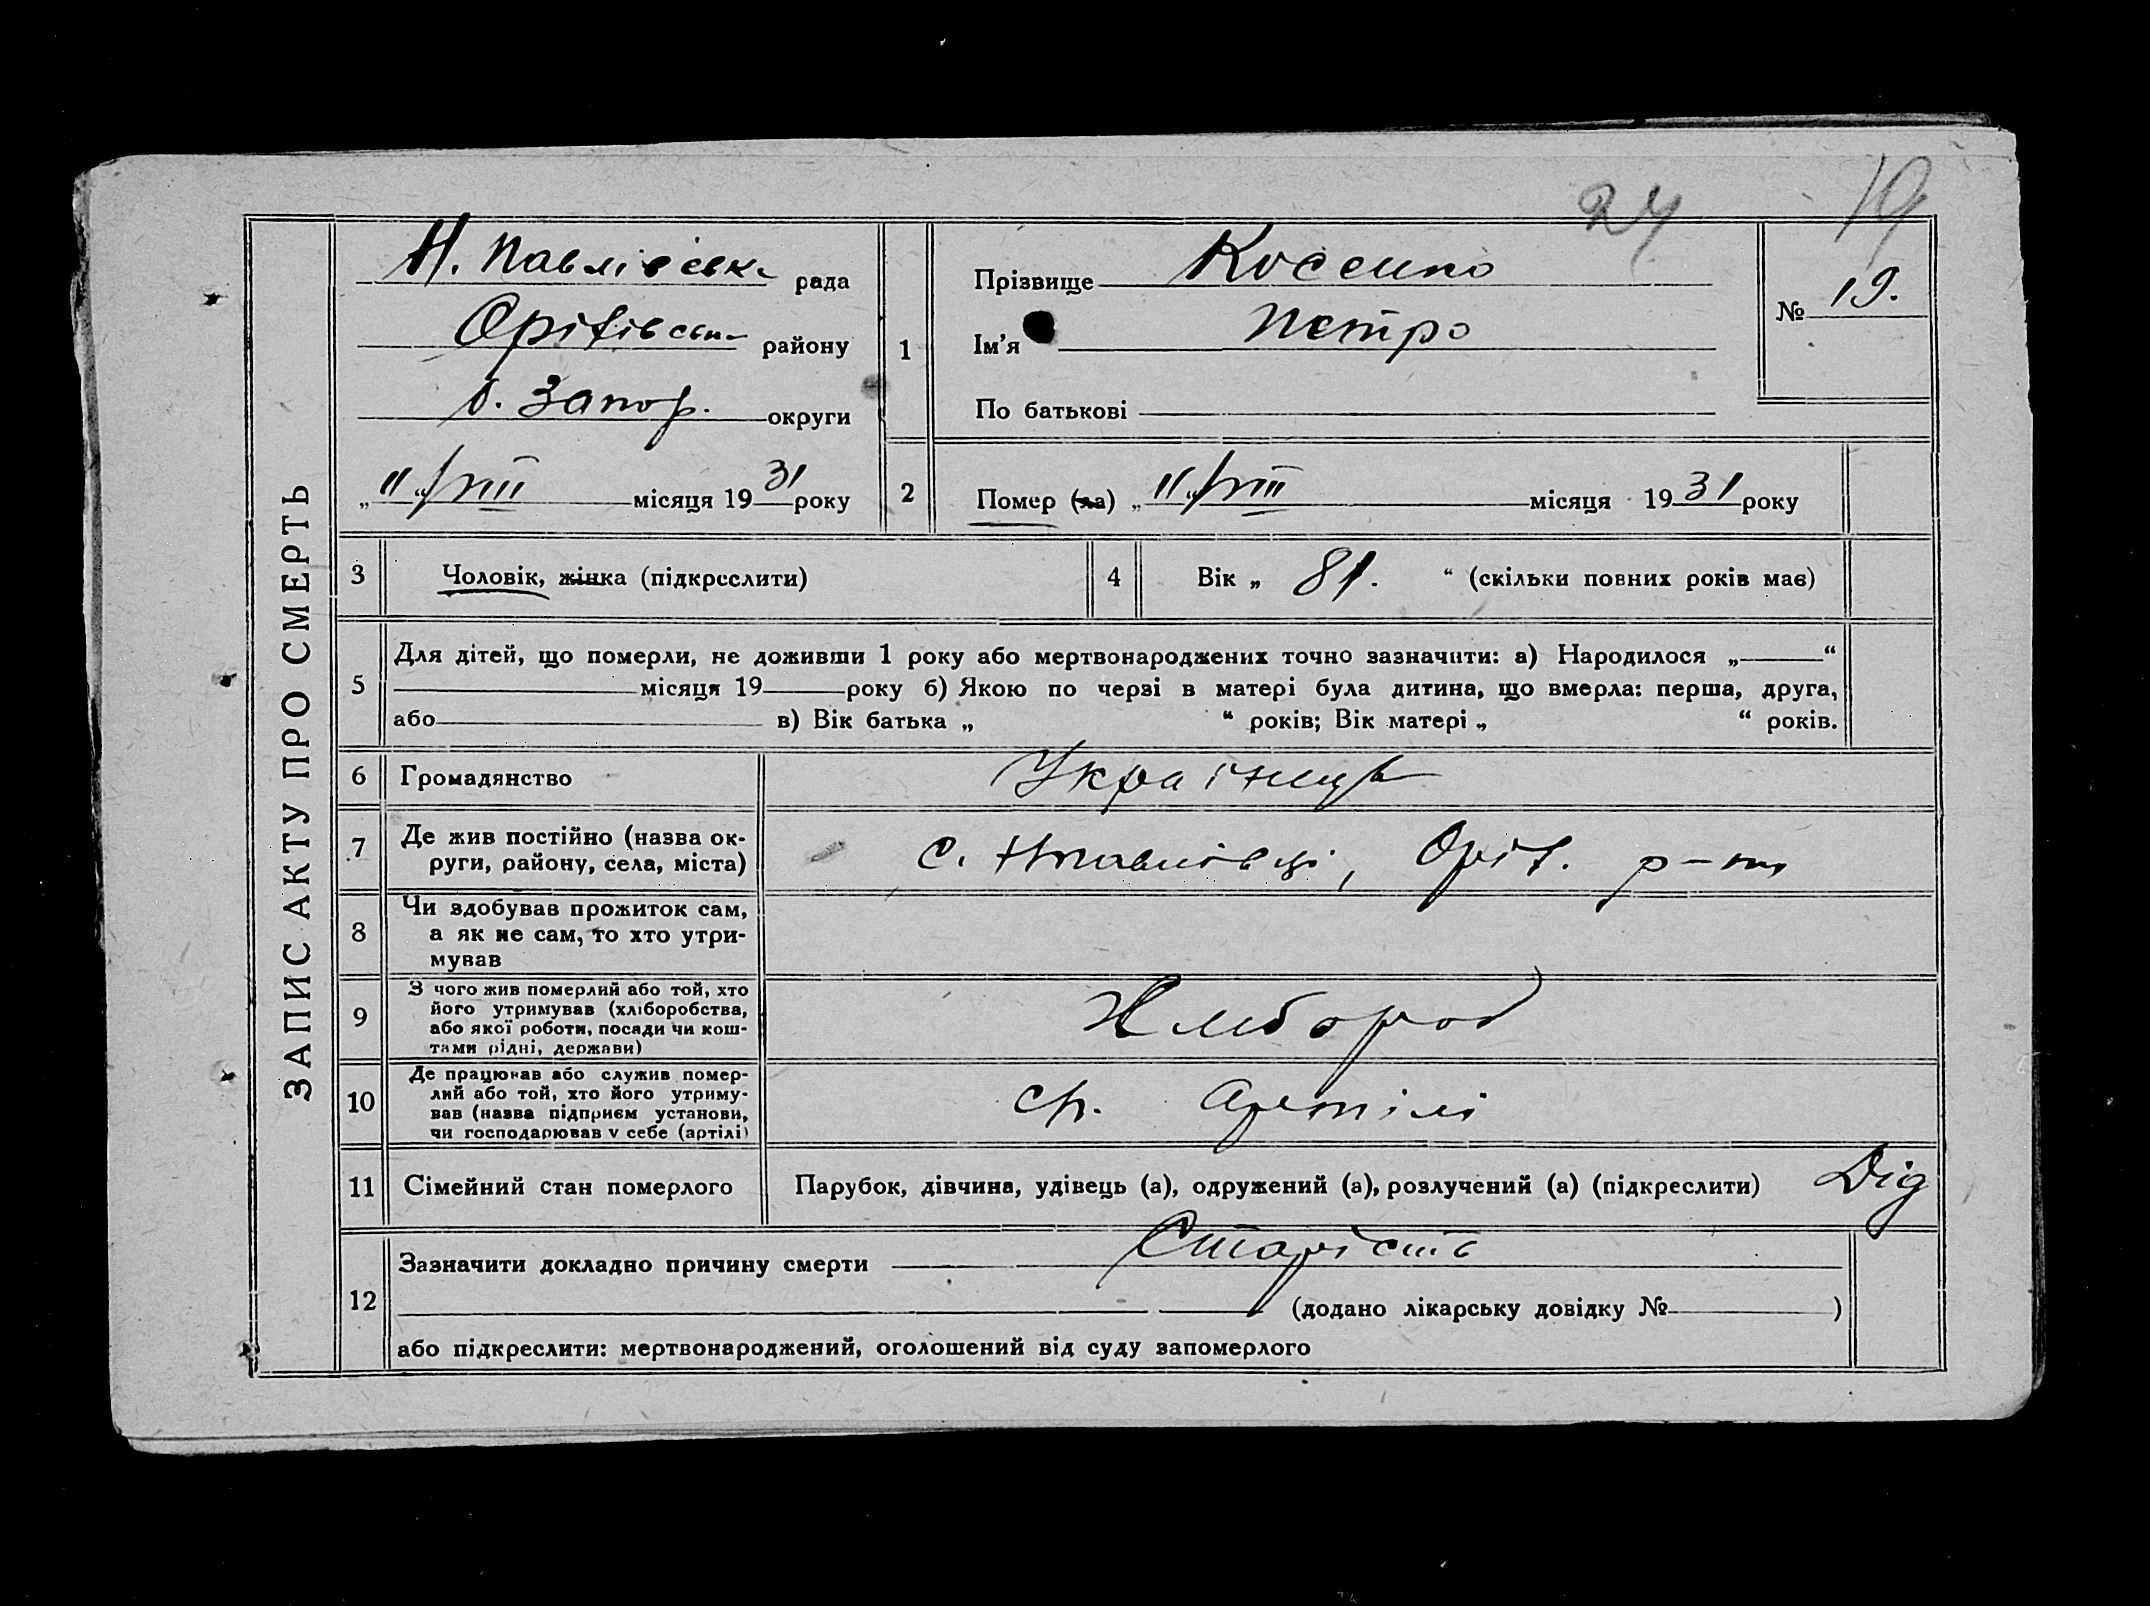 24 19
ЗАПИС АКТУ ПРО СМЕРТЬ
Н. Павлівськ. рада
Оріхівськ. району
б. Запор. округи
„11“/VIII місяця 1931 року
1
Прізвище Косенко
Ім'я Петро
По батькові
№ 19.
2
Помер (ла) „11“/VIII місяця 1931 року
3
Чоловік, жінка (підкреслити)
4
Вік „ 81. “ (скільки повних років має)
5
Для дітей, що померли, не доживши 1 року або мертвонароджених точно зазначити: а) Народилося „ “
місяця 19 року б) Якою по черзі в матері була дитина, що вмерла: перша, друга,
або в) Вік батька „ “ років; Вік матері „ “ років.
6
Громадянство
Українець
7
Де жив постійно (назва ок-
руги, району, села, міста)
с. Нпавлівці, Оріх. р-ну
8
Чи здобував прожиток сам,
а як не сам, то хто утри-
мував
9
З чого жив померлий або той, хто
його утримував (хліборобства,
або якої роботи, посади чи кош-
тами рідні, держави)
Хлібороб
10
Де працював або служив помер-
лий або той, хто його утриму-
вав (назва підприєм установи,
чи господарював у себе (артілі)
артілі
11
Сімейний стан померлого
Парубок, дівчина, удівець (а), одружений (а), розлучений (а) (підкреслити) Дід
12
Зазначити докладно причину смерти Старість
(додано лікарську довідку № )
або підкреслити: мертвонароджений, оголошений від суду запомерлого